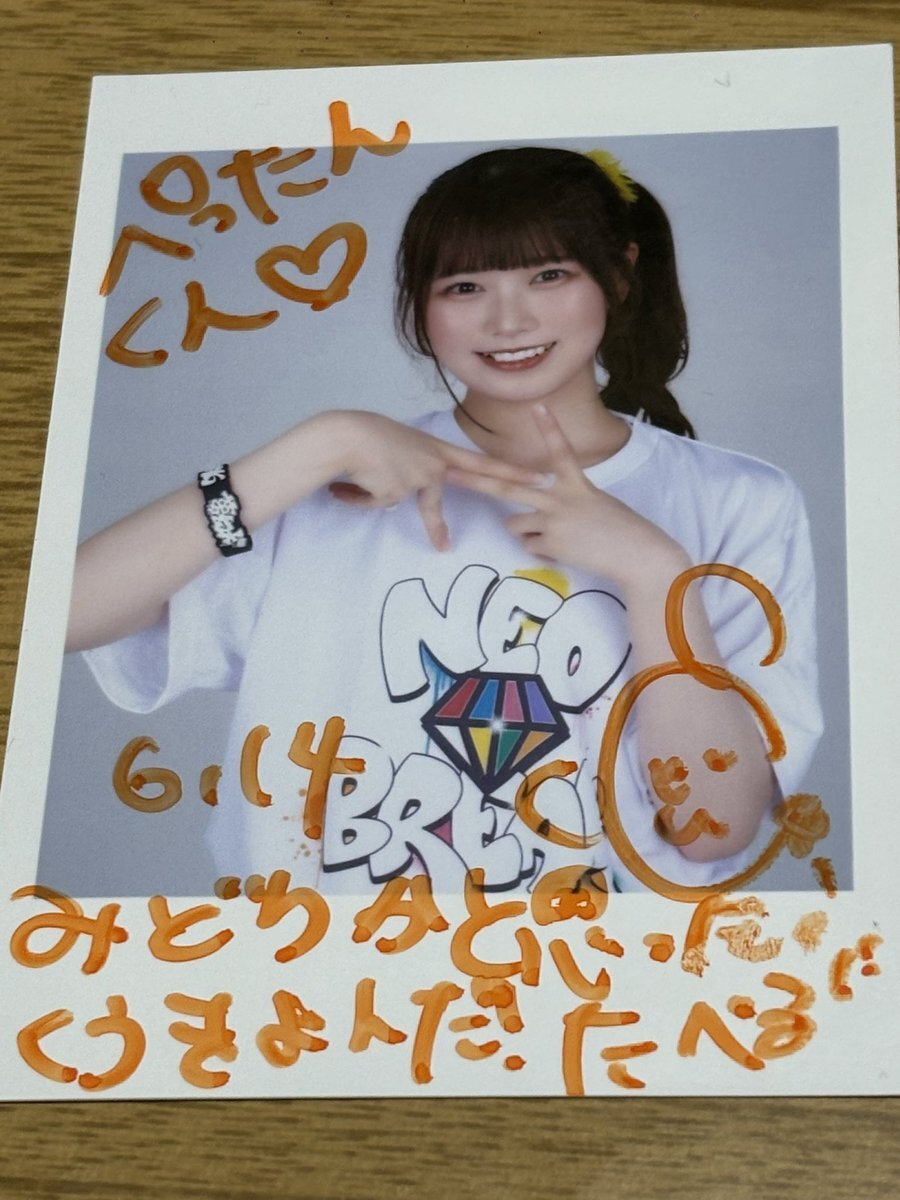 ぺったん
くん♡
NEO
6.14
BREA
みどりかと思った!
くうきよんだ!たべる!!